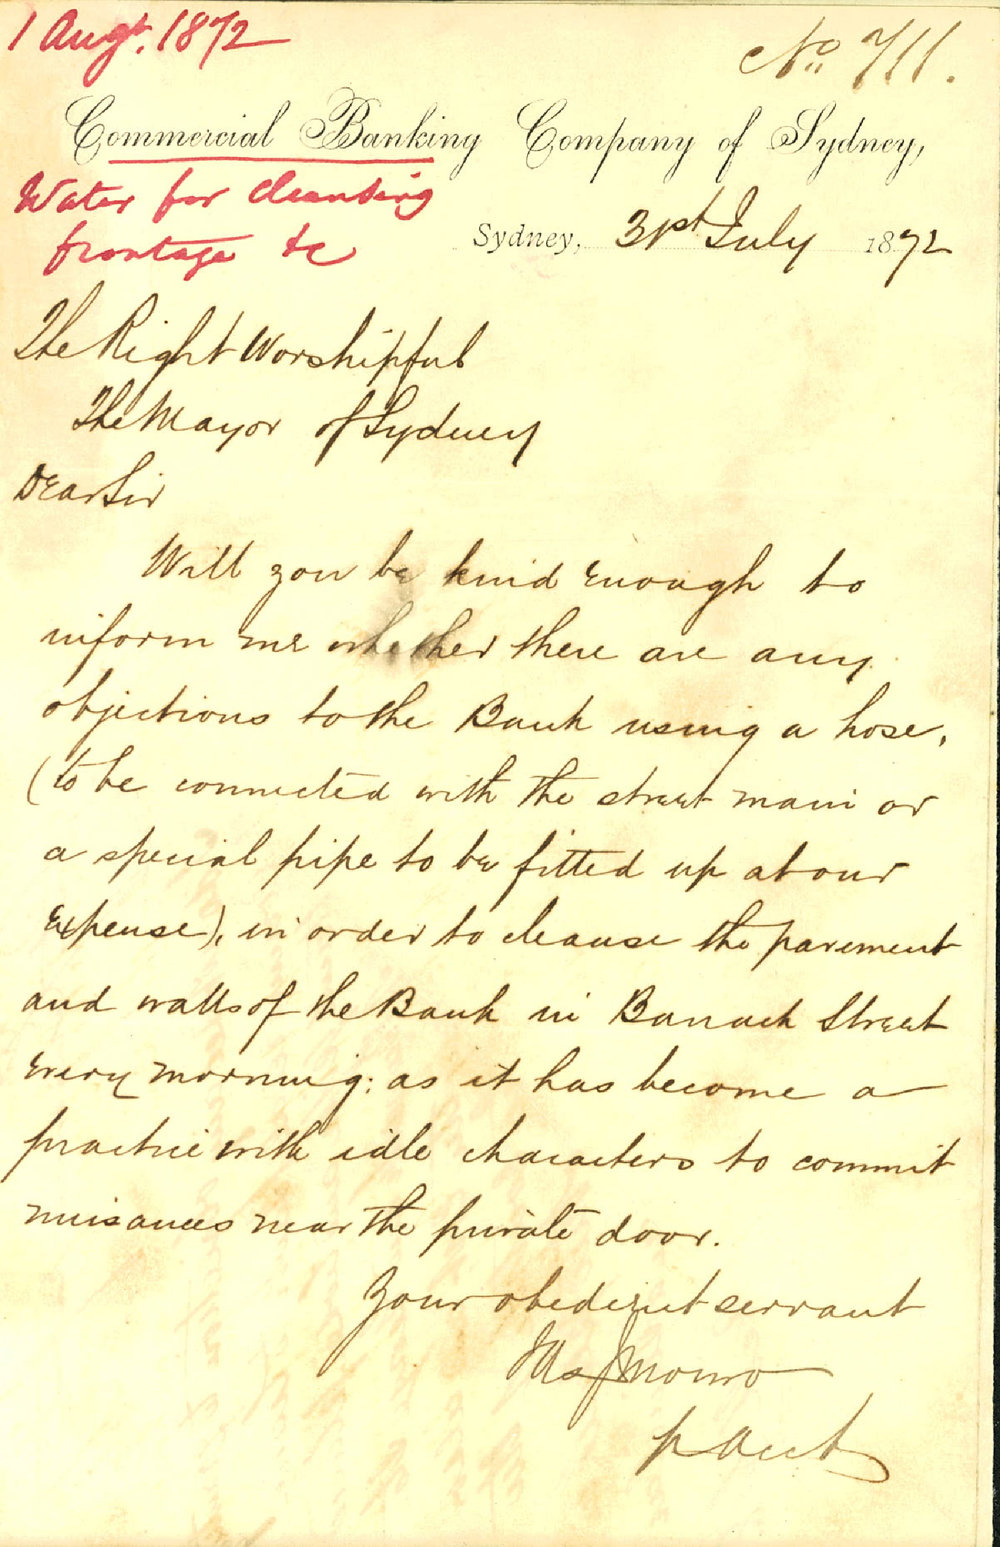 1 Augt. 1872
No. 711.
Commercial Banking Company of Sydney,
Water for cleansing
frontage &c
Sydney, 31st July 1872
The Right Worshipful
The Mayor of Sydney
Dear Sir
Will you be kind enough to
inform me whether there are any
objections to the Bank using a hose,
(to be connected with the street main or
a special pipe to be fitted up at our
expense), in order to cleanse the pavement
and walls of the Bank in Barrack Street
every morning: as it has become a
practice with idle characters to commit
nuisances near the private door.
Your obedient servant
Monro